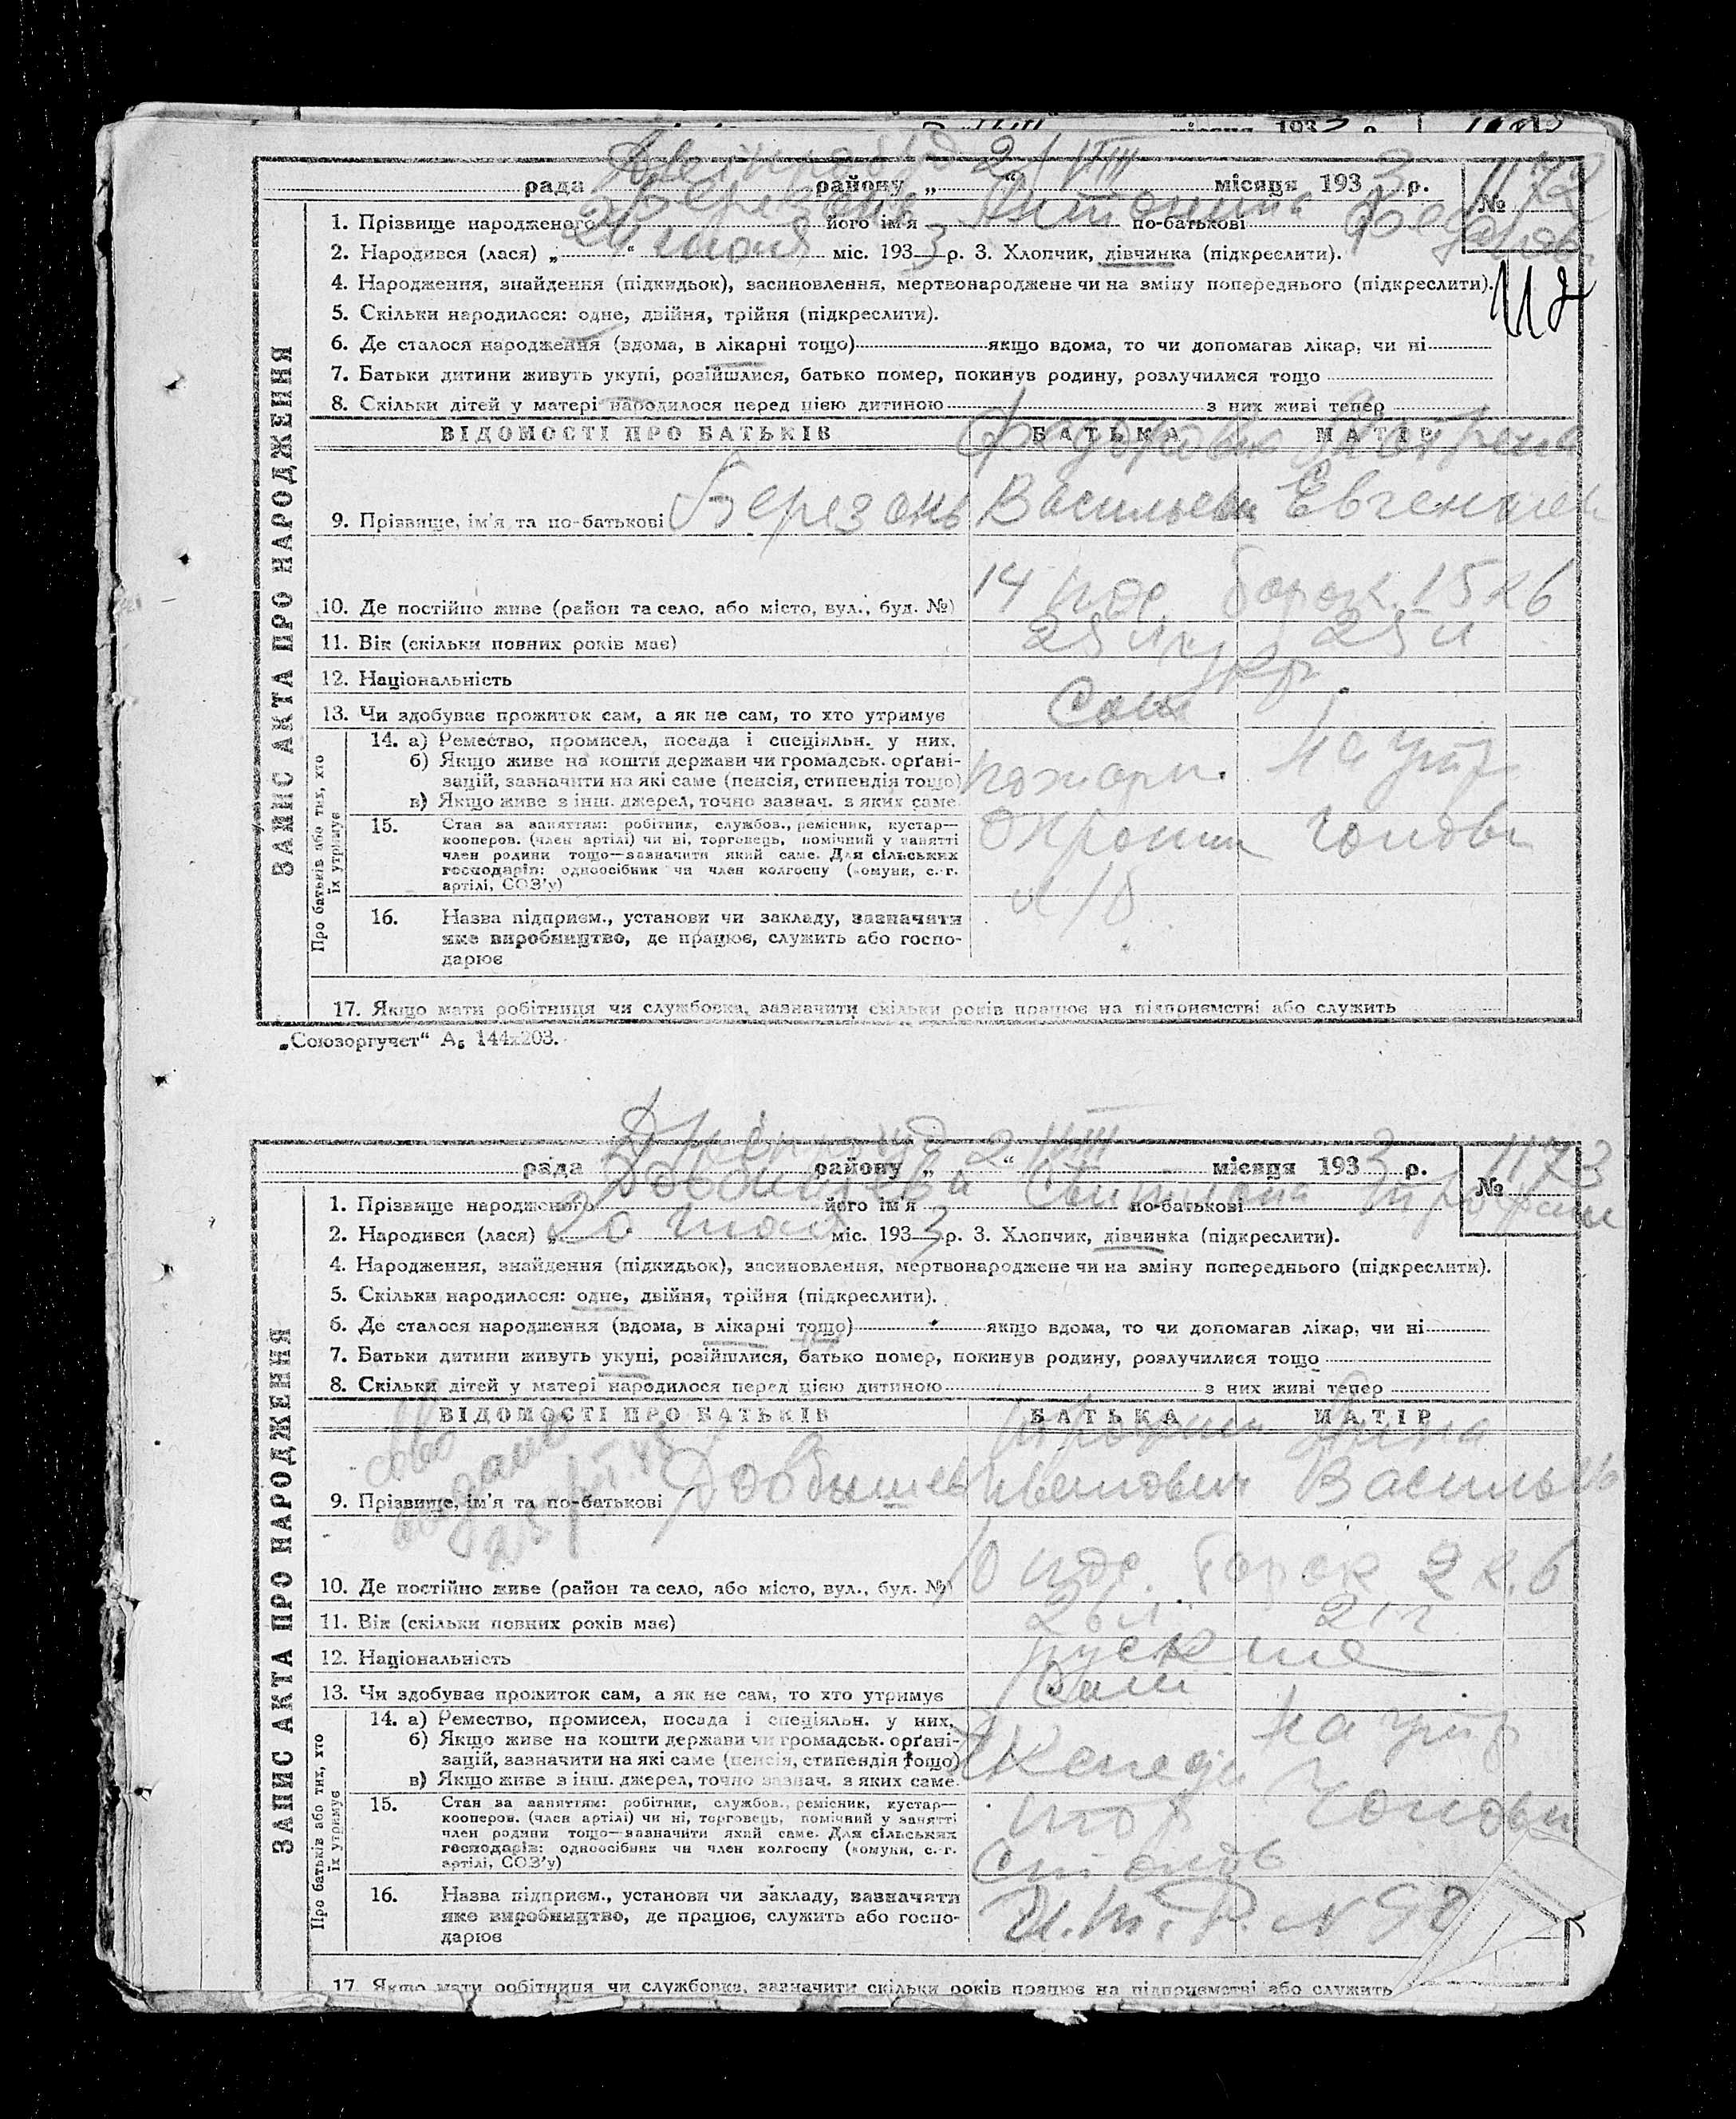 рада Дніпробуд району „ 2 “ VIII місяця 1933 р. № 1172
1. Прізвище народженого Березань його ім'я Антонина по-батькові Федоров.
2. Народився (лася) „ 24 “ июля міс. 1933 р. 3. Хлопчик, дівчинка (підкреслити).
4. Народження, знайдення (підкидьок), засиновлення, мертвонароджене чи на зміну попереднього (підкреслити).
5. Скільки народилося: одне, двійня, трійня (підкреслити).
6. Де сталося народження (вдома, в лікарні тощо) якщо вдома, то чи допомагав лікар, чи ні
7. Батьки дитини живуть укупі, розійшлися, батько помер, покинув родину, розлучилися тощо
8. Скільки дітей у матері народилося перед цією дитиною з них живі тепер
ЗАПИС АКТА ПРО НАРОДЖЕННЯ
ВІДОМОСТІ ПРО БАТЬКІВ БАТЬКА МАТІР
9. Прізвище, ім'я та по-батькові Березань Васильевич
10. Де постійно живе (район та село, або місто, вул., буд. №) 14 пос. барак 15 к 6
11. Вік (скільки повних років має) 25 л 25 л
12. Національність укр.
13. Чи здобуває прожиток сам, а як не сам, то хто утримує Сам
Про батьків або тих, хто їх утримує
14. а) Ремество, промисел, посада і спеціяльн. у них.
б) Якщо живе на кошти держави чи громадськ. орґані-
зацій, зазначити на які саме (пенсія, стипендія тощо) пожарн. На утр
в) Якщо живе з інш. джерел, точно зазнач. з яких саме.
15. Стан за заняттям: робітник, службов., ремісник, кустар—
кооперов. (член артілі) чи ні, торговець, помічний у занятті
член родини тощо—зазначити який саме. Для сільських
господарів: одноосібник чи член колгоспу (комуни, с.-г.
артілі, СОЗ'у)
16. Назва підприєм., установи чи закладу, зазначити
яке виробництво, де працює, служить або госпо-
дарює
17. Якщо мати робітниця чи службовка, зазначити скільки років працює на підприємстві або служить
„Союзоргучет“ А₅ 144х203.
рада Дніпробуд району „ 2 “ VIII місяця 1933 р. № 1173
1. Прізвище народженого його ім'я Светлана по-батькові Трофим
2. Народився (лася) „ 20 “ июля міс. 1933 р. 3. Хлопчик, дівчинка (підкреслити).
4. Народження, знайдення (підкидьок), засиновлення, мертвонароджене чи на зміну попереднього (підкреслити).
5. Скільки народилося: одне, двійня, трійня (підкреслити).
6. Де сталося народження (вдома, в лікарні тощо) якщо вдома, то чи допомагав лікар, чи ні
7. Батьки дитини живуть укупі, розійшлися, батько помер, покинув родину, розлучилися тощо
8. Скільки дітей у матері народилося перед цією дитиною з них живі тепер
ЗАПИС АКТА ПРО НАРОДЖЕННЯ
ВІДОМОСТІ ПРО БАТЬКІВ БАТЬКА МАТІР
Трофим Анна
9. Прізвище, ім'я та по-батькові Добышев Иванович Василь
10. Де постійно живе (район та село, або місто, вул., буд. №) 10 пос. барак 2 к. 6
11. Вік (скільки повних років має) 26 л. 21 г
12. Національність руские
13. Чи здобуває прожиток сам, а як не сам, то хто утримує Сам
Про батьків або тих, хто їх утримує
14. а) Ремество, промисел, посада і спеціяльн. у них.
б) Якщо живе на кошти держави чи громадськ. орґані-
зацій, зазначити на які саме (пенсія, стипендія тощо) На утр
в) Якщо живе з інш. джерел, точно зазнач. з яких саме.
15. Стан за заняттям: робітник, службов., ремісник, кустар—
кооперов. (член артілі) чи ні, торговець, помічний у занятті
член родини тощо—зазначити який саме. Для сільських
господарів: одноосібник чи член колгоспу (комуни, с.-г.
артілі, СОЗ'у)
16. Назва підприєм., установи чи закладу, зазначити
яке виробництво, де працює, служить або госпо-
дарює
17. Якщо мати робітниця чи службовка, зазначити скільки років працює на підприємстві або служить